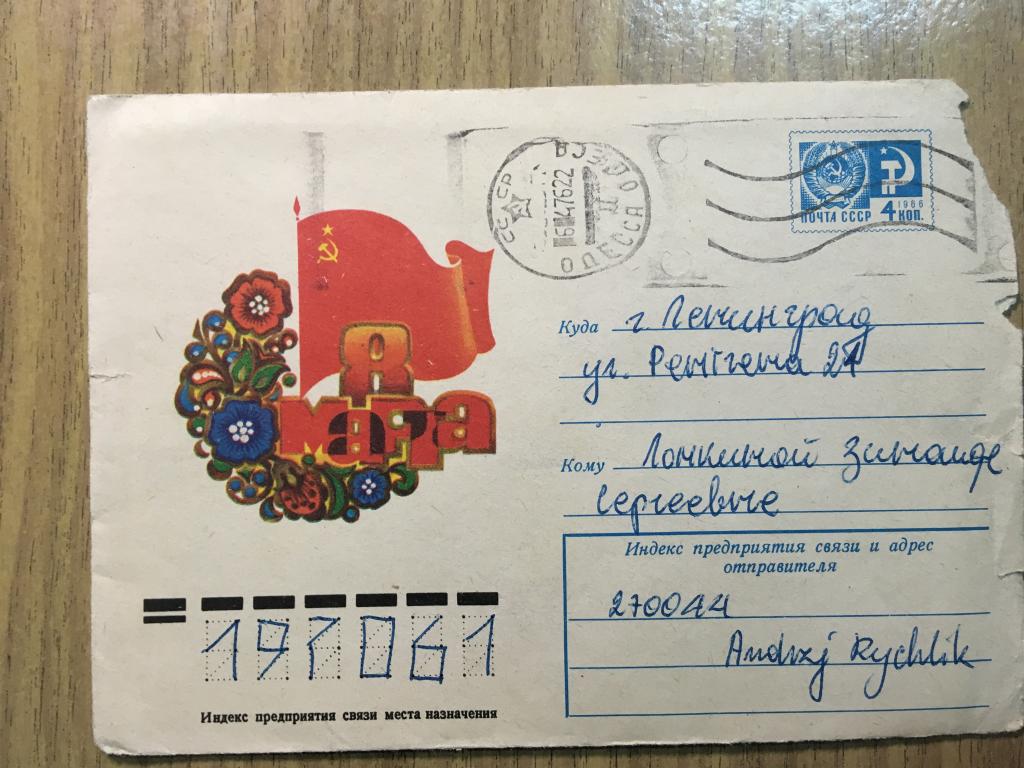 СССР
ОДЕССА
6 476 22
ПОЧТА СССР
1966
4 КОП.
8
марта
Куда г. Ленинград
ул. Рентгена
Кому Лонкиной Зинаиде
Сергеевне
Индекс предприятия связи и адрес
отправителя
270044
Andrzj Rychlik
197061
Индекс предприятия связи места назначения